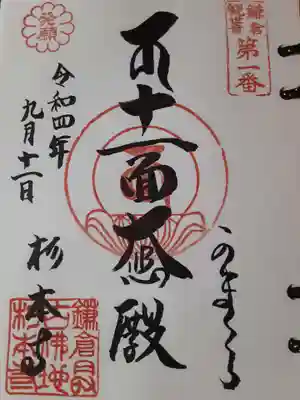 鎌倉
観音
第一番
かまくら
十一面大悲殿
発願
令和四年
九月十一日
杉本寺
鎌倉最
古佛地
杉本寺